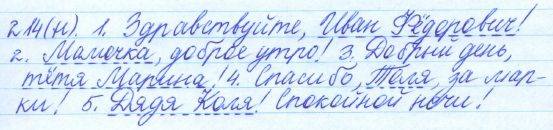 214(н). 1. Здравствуйте, Иван Фёдорович!
2. Мамочка, доброе утро! 3. Добрый день,
тётя Марина! 4. Спасибо, Толя, за мар-
ки! 5. Дядя Коля! Спокойной ночи!